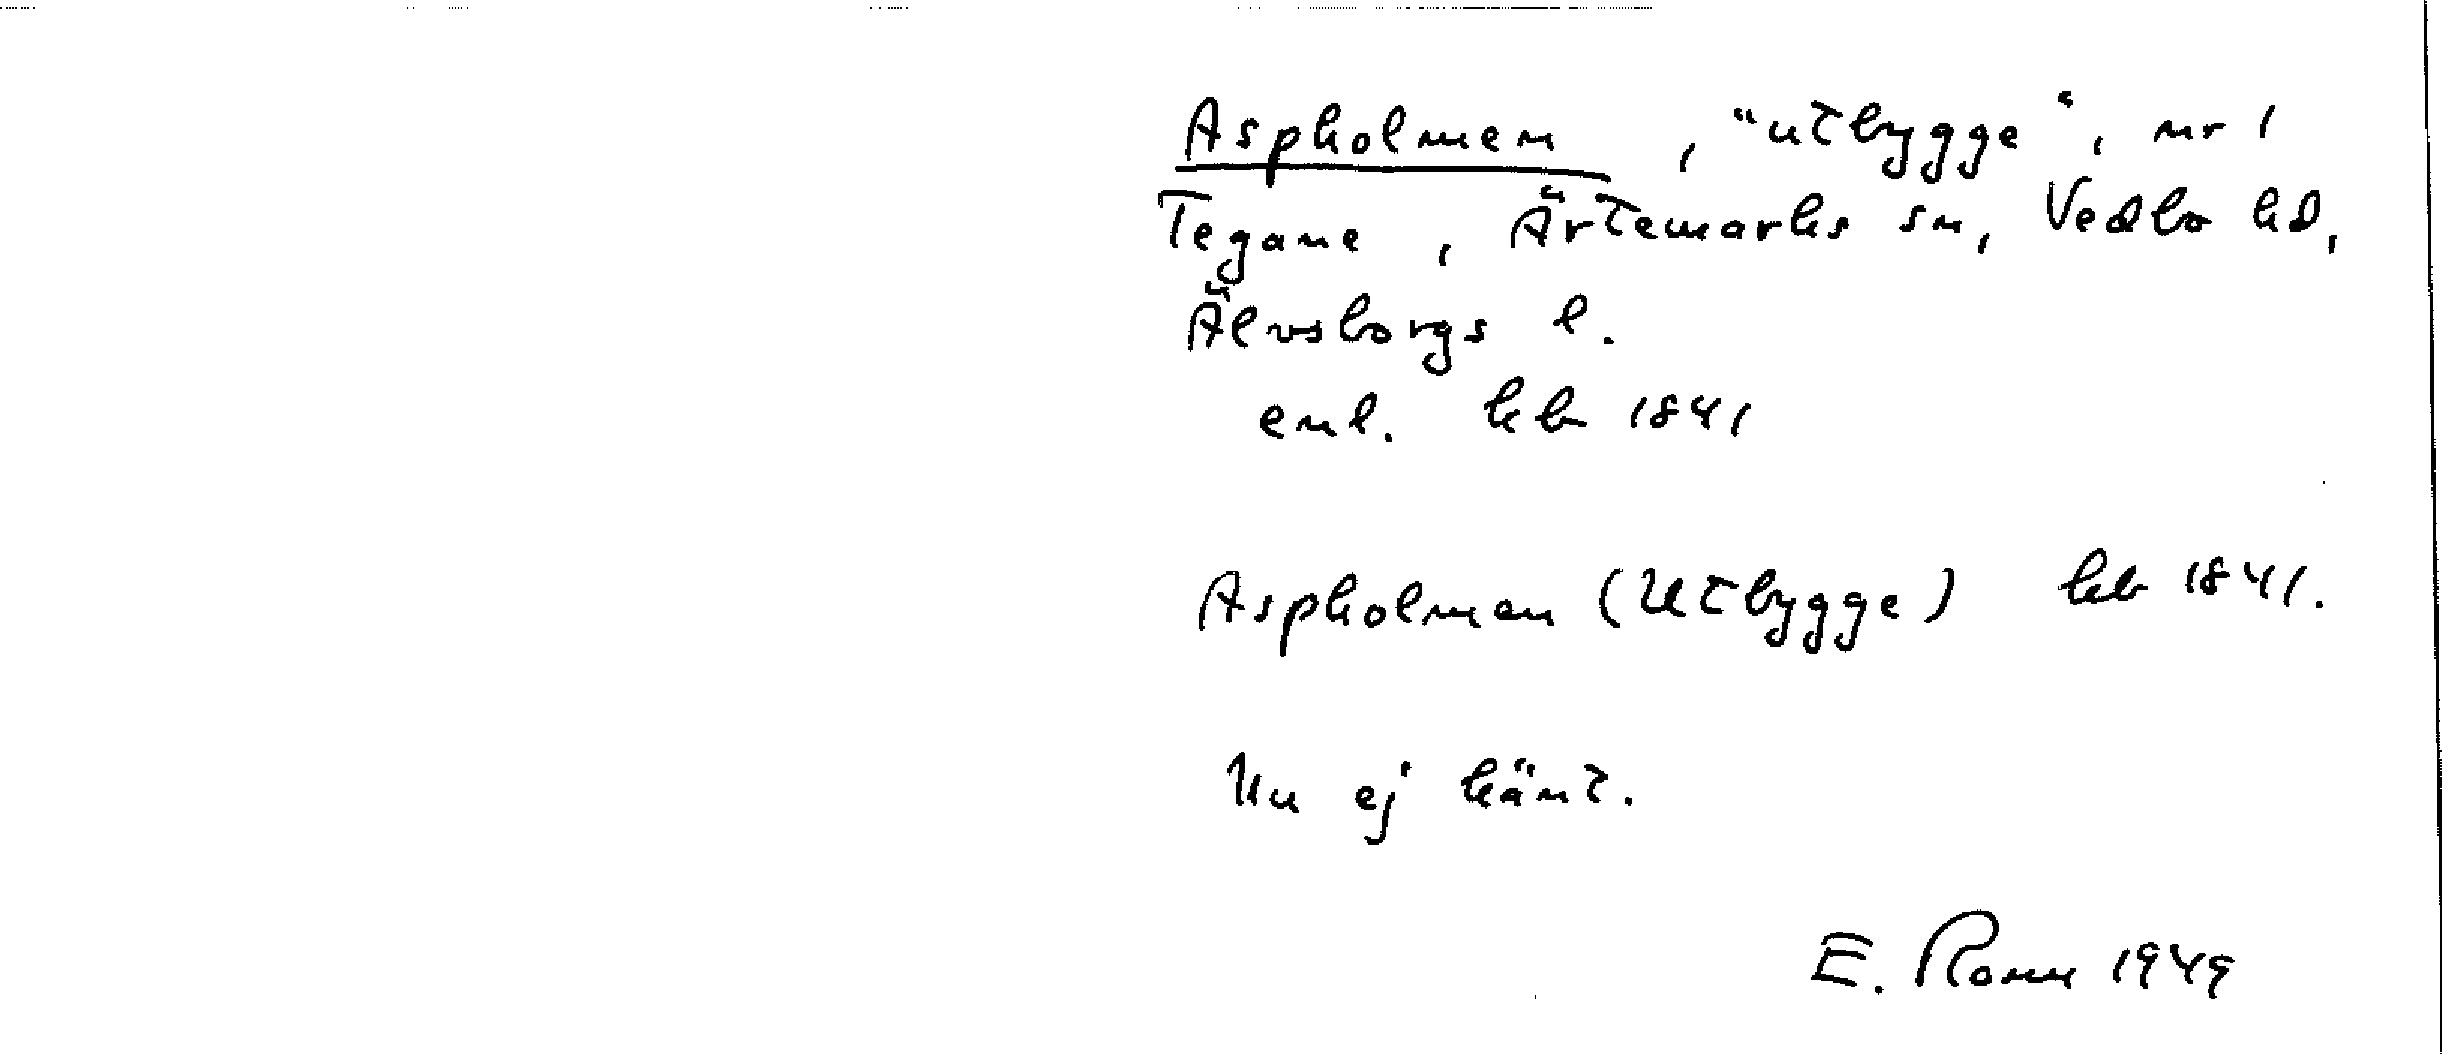 Aspholmen, "utbygge", nr 1
Tegane, Ärtemarks sn, Vedbo hd,
Älvsborgs l.
enl. kb 1841
Aspholmen (Utbygge) kb 1841.
Nu ej känt.
E. 1949